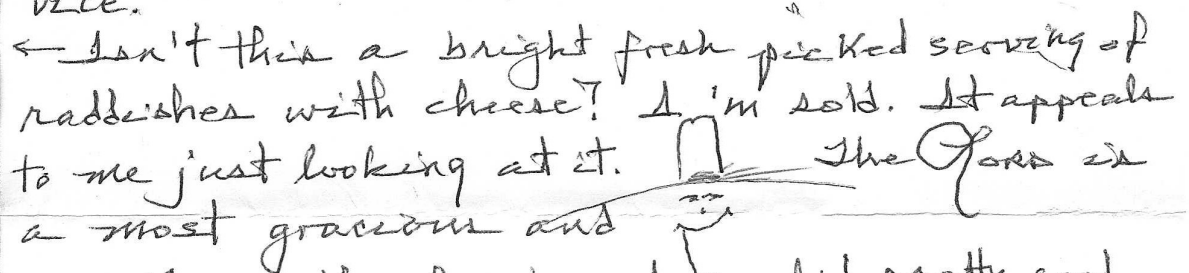 ← Isn't this a bright fresh picked serving of
raddishes with cheese? I'm sold. It appeals
to me just looking at it. The Lord is
a most gracious and